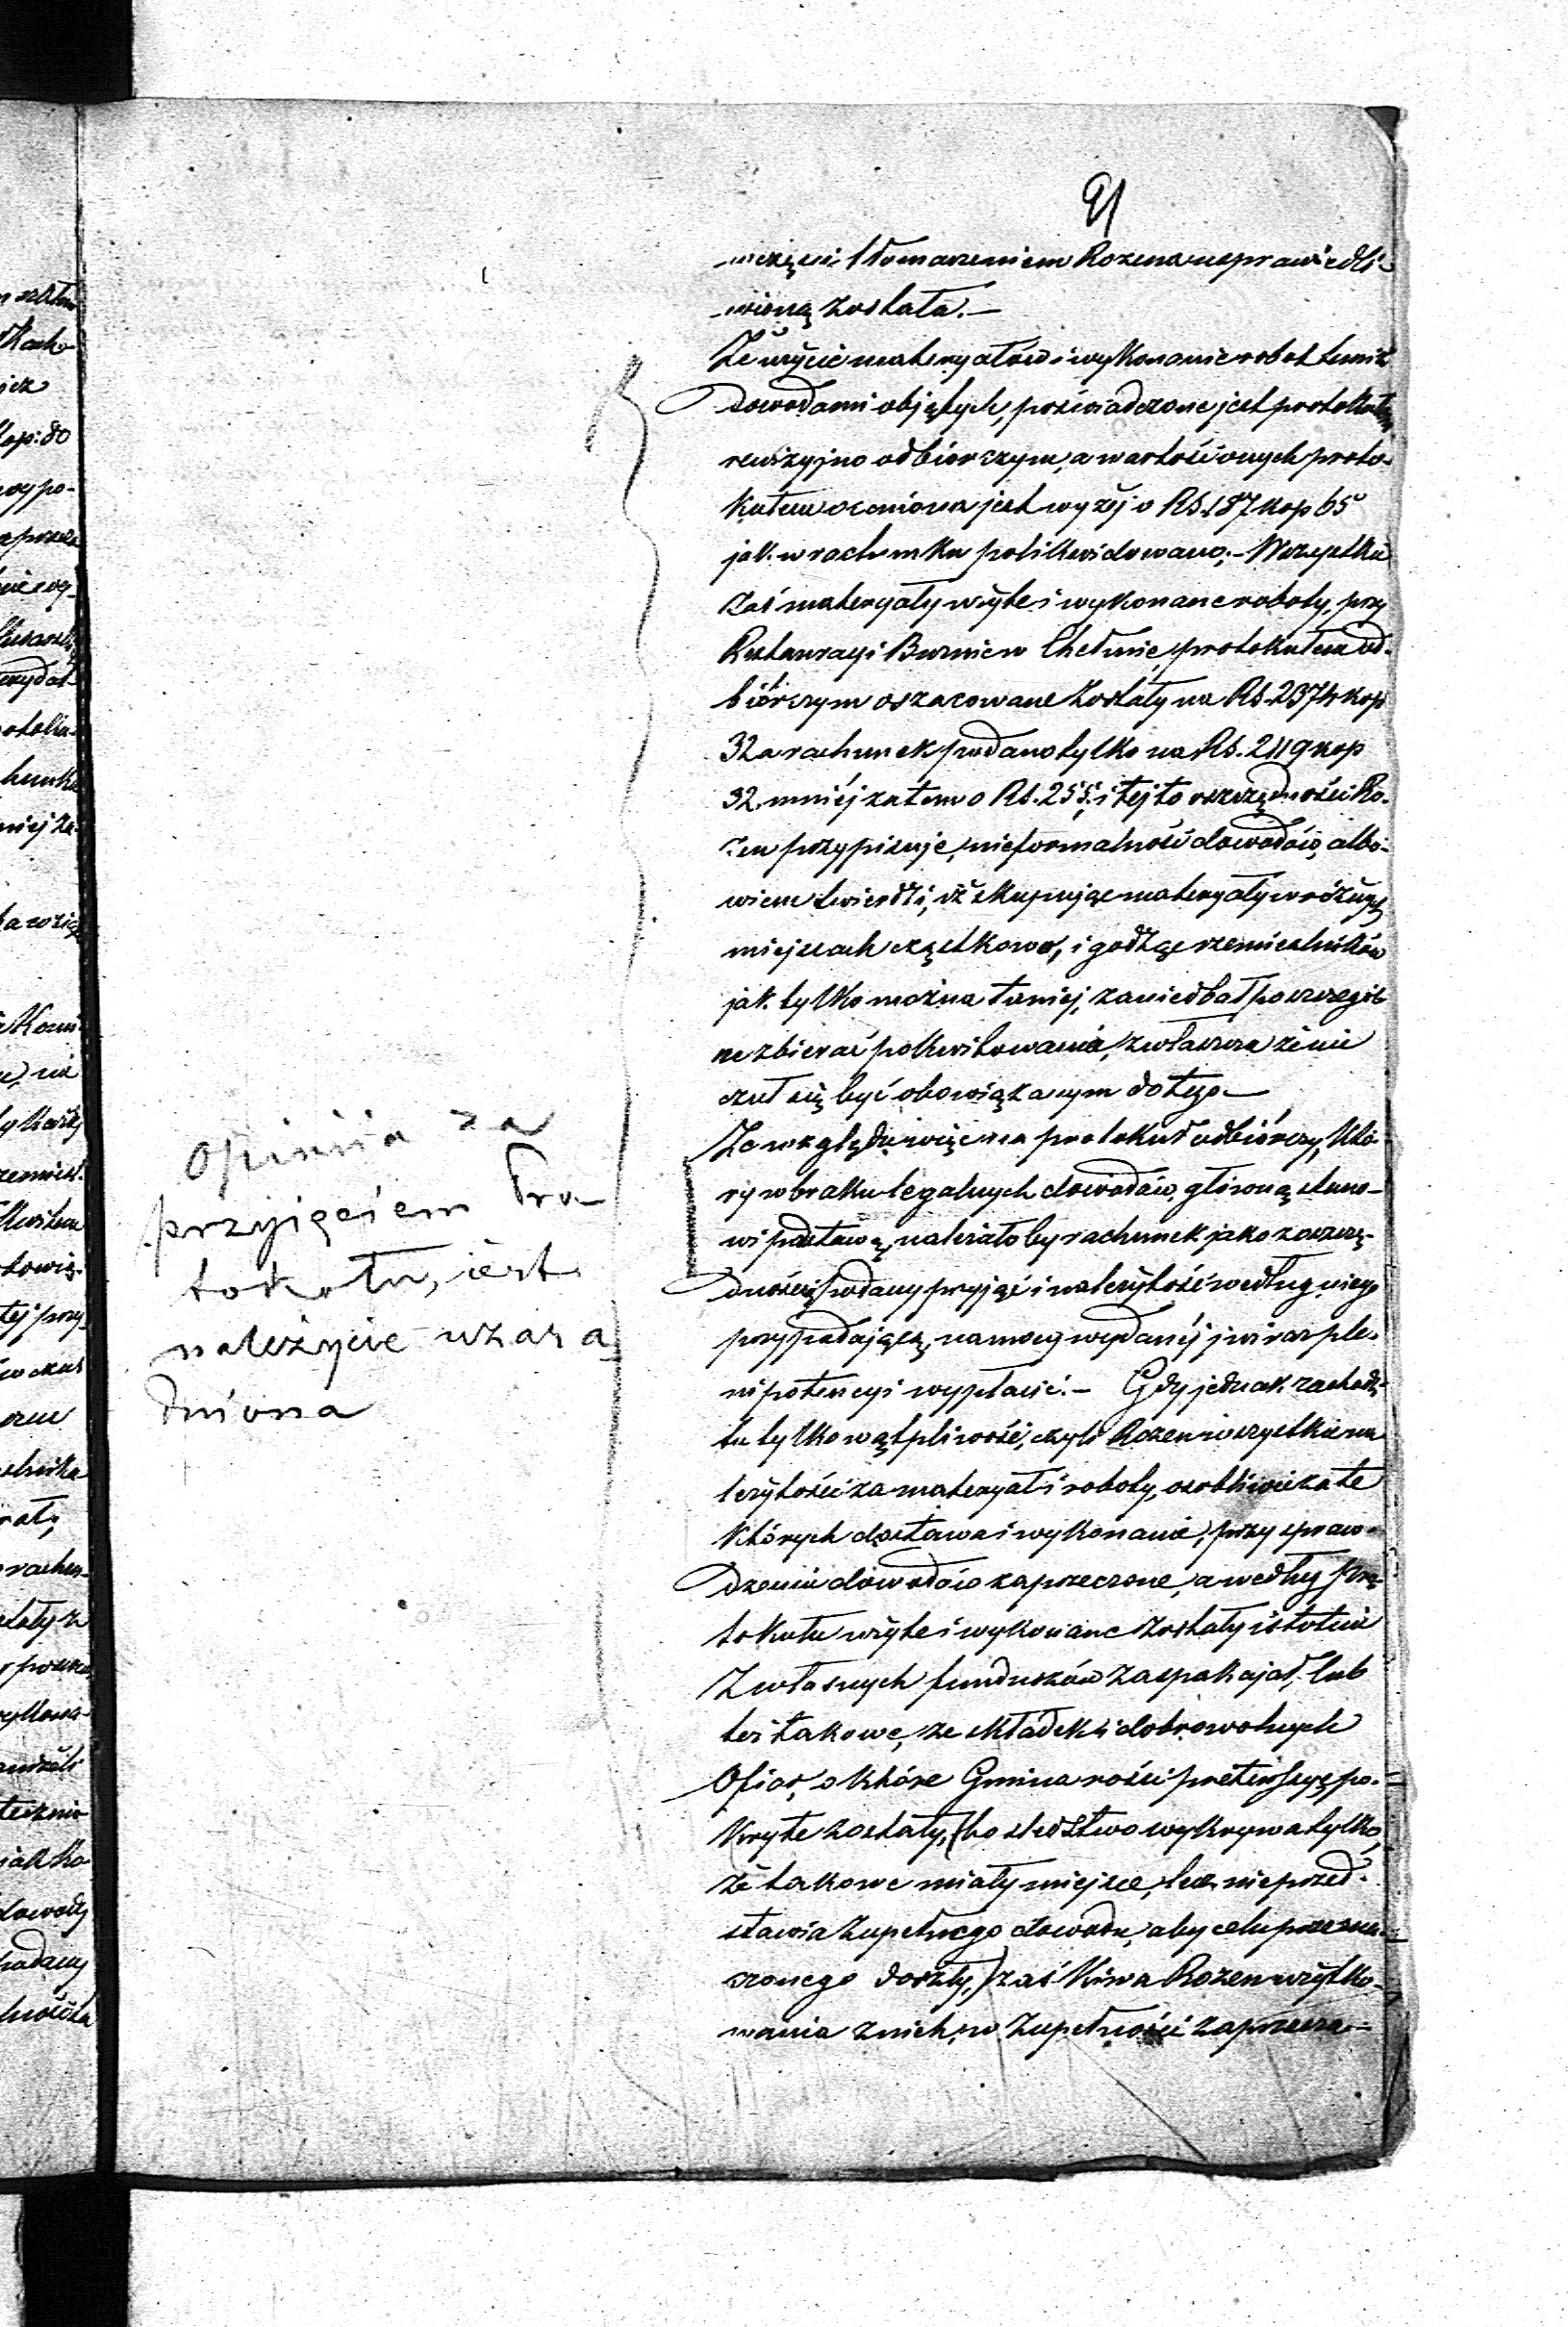 91
więcéj tłomaczeniem Rozena usprawiedli-
wioną została.—
Że użycie materyałów i wykonanie robot temiż
dowodami objętych, poświadczone jest protokułem
rewizyjno odbiorczym, a wartość onych proto-
kułem oceniona jest wyżéj o Rs. 187 kop 65
jak w rachunku polikwidowano.- Wszystkie
zaś materyały użyte i wykonane roboty, przy
Restauracyi Buźnic w Chełmie, protokułem od-
biórczym oszacowane zostały na Rs. 2374 kop
32 a rachunek podano tylko na Rs. 2119 kop
32. mniéj zatem o Rs. 255. i téj to oszczędności Ro-
zen przypisuje, nieformalność dowodów, albo-
wiem twierdzi, iż skupując materyały w różnych
miejscach cząstkowo, i godząc rzemieślników
jak tylko można taniéj, zaniedbał poszczegól-
ne zbierać pokwitowania, zwłaszcza że nie
czuł się być obowiązanym do tego—
Ze względu więc na protokuł odbiórczy, któ-
ry w braku legalnych dowodów, główną stano-
wi podstawę, należałoby rachunek jako z oszczę-
dnością podany przyjąć i należytość według niego
przypadającą, na mocy wydanéj już raz ple-
nipotencyi wypłacić.- Gdy jednak zachodzi
tu tylko wątpliwość, czyli Rozen wszystkie na-
leżytości za materyał i roboty, osobliwie za te
których dostawa i wykonanie, przy spraw-
dzeniu dowodów zaprzeczone, a według pro-
tokułu użyte i wykonane zostały istotnie
z własnych funduszów zaspakajał, lub
też takowe, ze składek i dobrowolnych
Ofiar, o które Gmina rości pretensyę, po-
kryte zostały, (bo śledztwo wykrywa tylko,
że takowe miały miejsce, lecz nie przed-
stawia zupełnego dowodu, aby celu przezna-
czonego doszły,) zaś Kiwa Rozen użytko-
wania z nich, w zupełności zaprzecza—
Opiniia za
przyjęciem Pro-
tokołu, jest
należycie uzasa
dniona